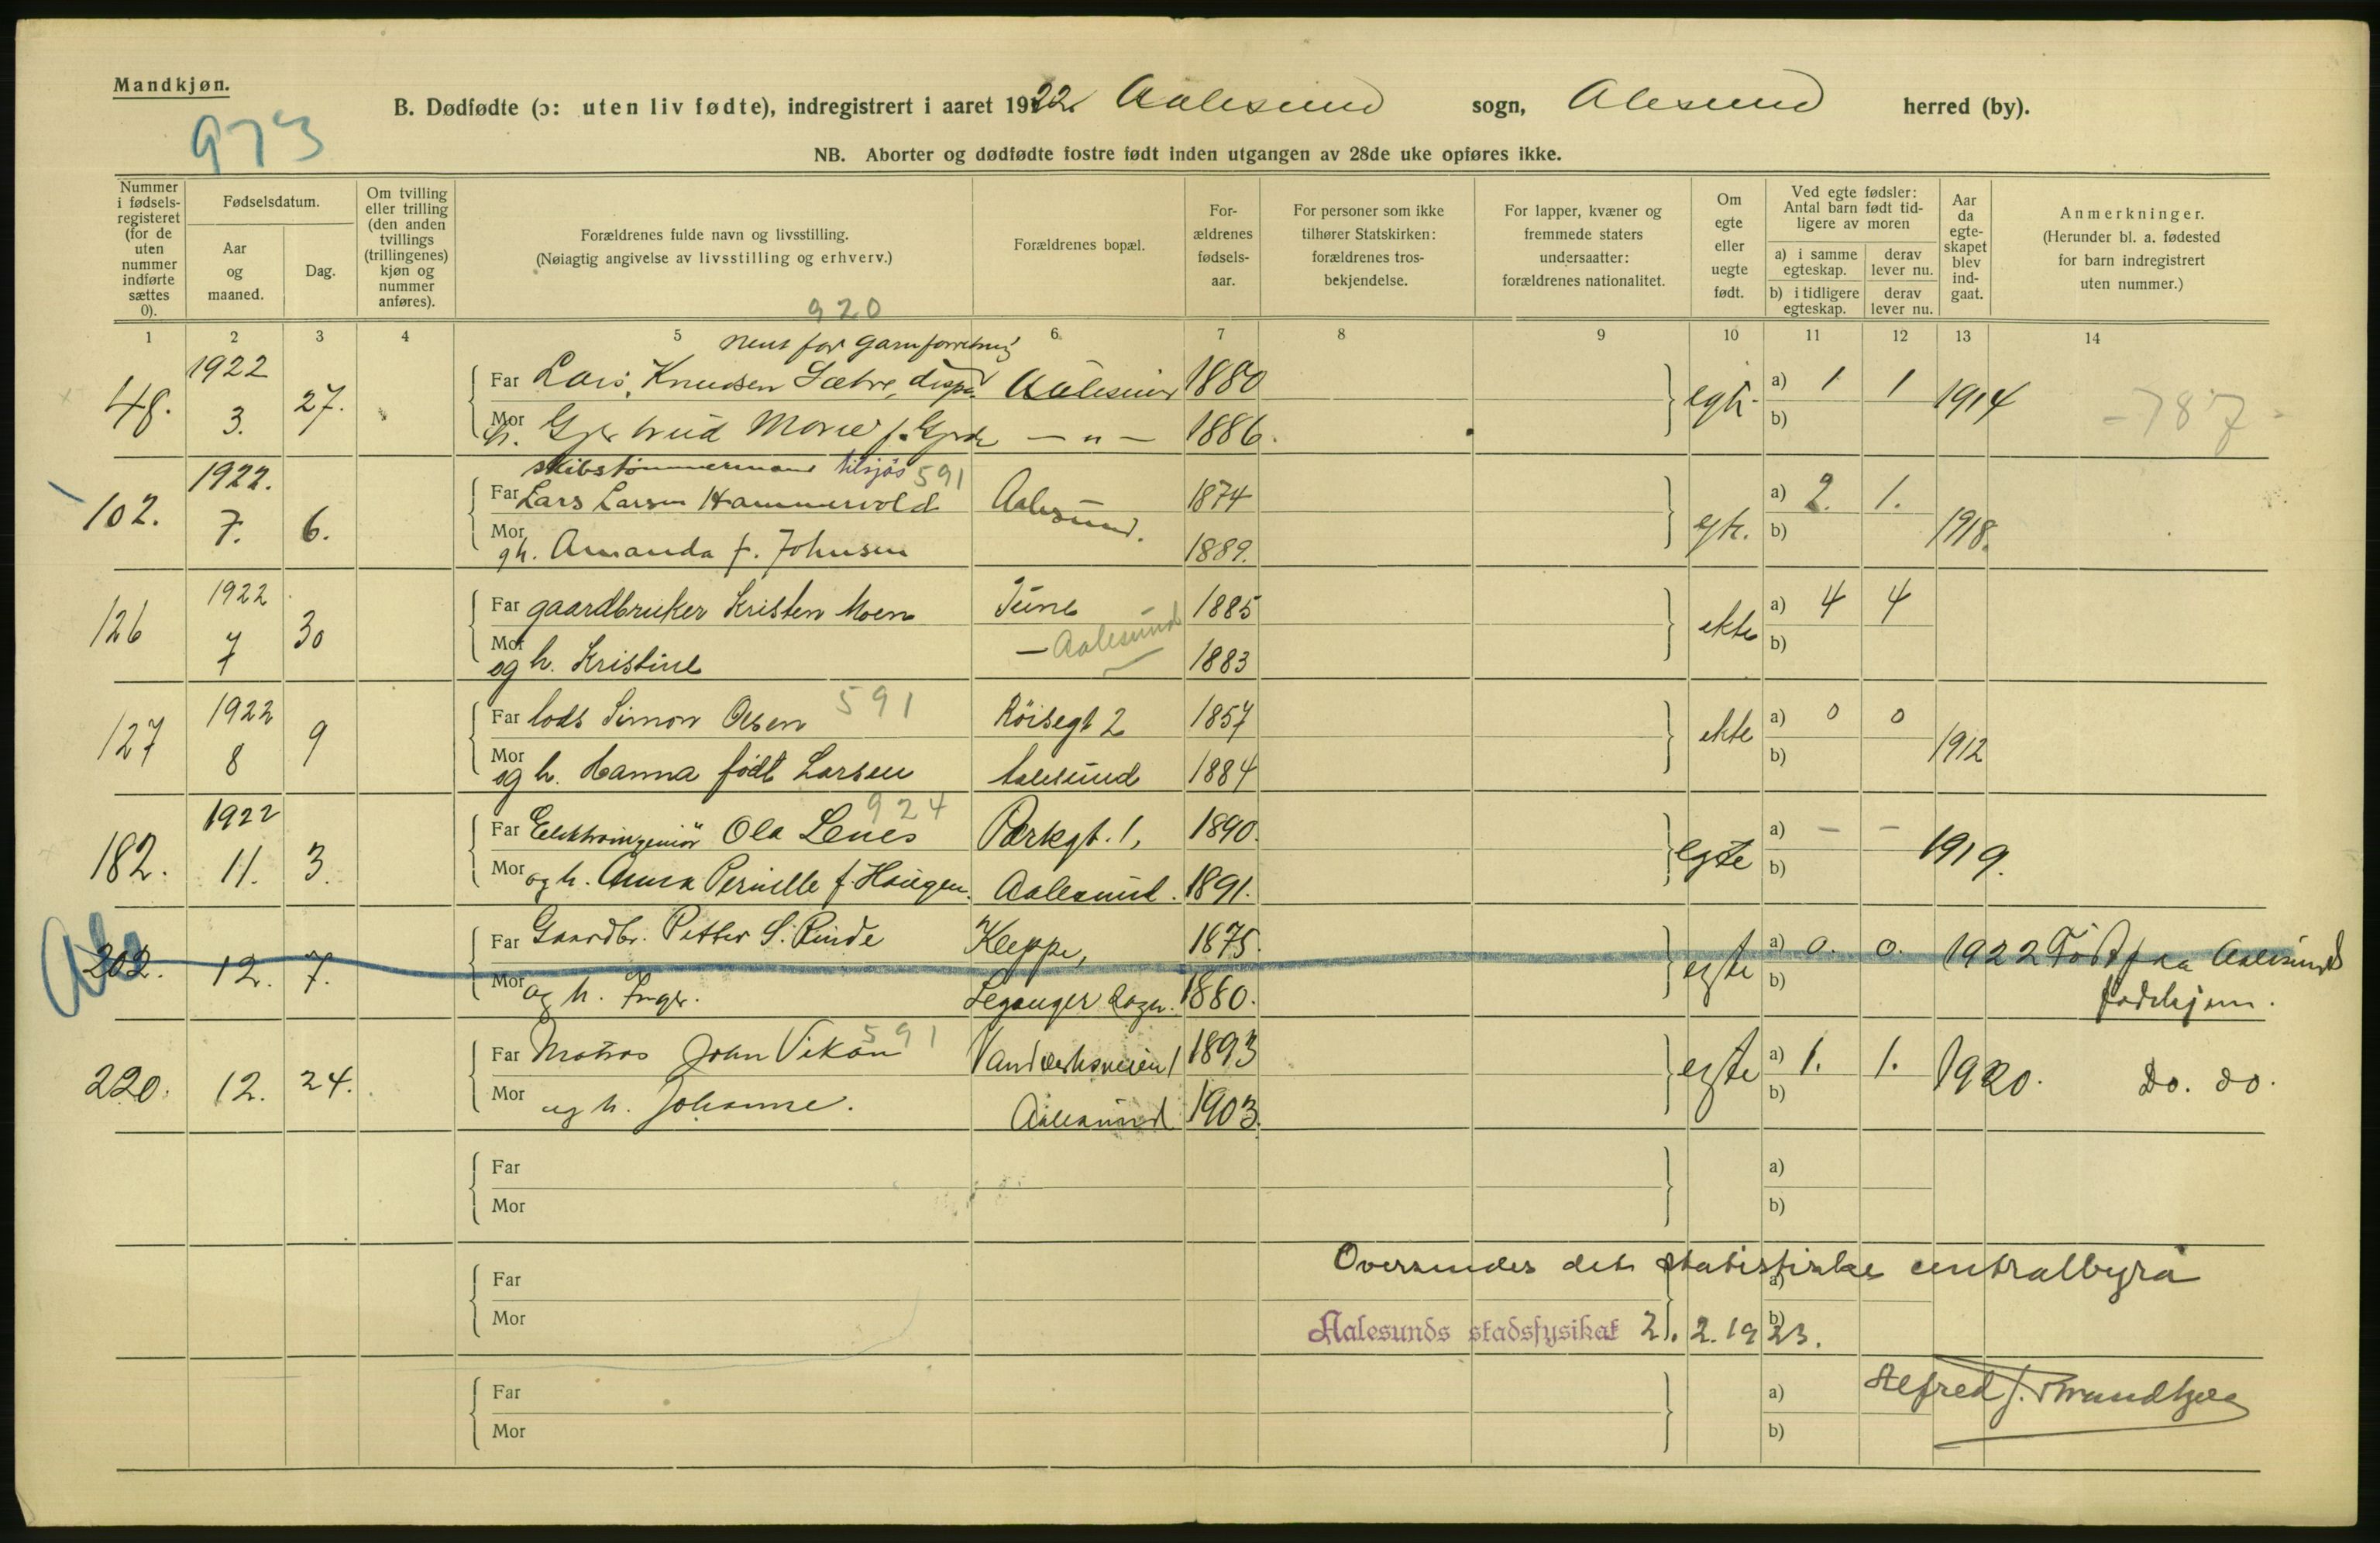 Mandkjøn.
973
B. Dødfødte (ɔ: uten liv fødte), indregistrert i aaret 1922. Aalesund sogn, Alesund herred (by).
NB. Aborter og dødfødte fostre født inden utgangen av 28de uke opføres ikke.
Nummer i fødsels-registeret (for de uten nummer indførte sættes 0).
Fødselsdatum.
Aar og maaned.
Dag.
Om tvilling eller trilling (den anden tvillings (trillingenes) kjøn og nummer anføres).
Forældrenes fulde navn og livsstilling.
(Nøiagtig angivelse av livsstilling og erhverv.)
Forældrenes bopæl.
For-ældrenes fødsels-aar.
For personer som ikke tilhører Statskirken: forældrenes tros-bekjendelse.
For lapper, kvæner og fremmede staters undersaatter: forældrenes nationalitet.
Om egte eller uegte født.
Ved egte fødsler: Antal barn født tid-ligere av moren
a) i samme egteskap.
derav lever nu.
b) i tidligere egteskap.
derav lever nu.
Aar da egte-skapet blev ind-gaat.
Anmerkninger.
(Herunder bl. a. fødested for barn indregistrert uten nummer.)
920
1 2 3 4 5 6 7 8 9 10 11 12 13 14
nent for garnforretning
48. 1922 3. 27. Far Lars Knudsen Sætre, dispo Aalesund 1880 egte a) 1 1 1914 -787-
Mor h. Gjertrud Marie f. Gjerde — " — 1886. b)
skibstømmermand tilsjøs 591
102. 1922. 7. 6. Far Lars Larsen Hammervold Aalesund. 1874 egte. a) 2. 1. 1918.
Mor gh. Amanda f. Johnsen 1889. b)
126 1922 7 30 Far gaardbruker Kristen Moen 1885 ekte a) 4 4
Mor og h. Kristine — Aalesund 1883 b)
127 1922 8 9 Far lods Simon Olsen 591 Röisegt 2 1857 ekte a) 0 0 1912
Mor og h. Hanna født Larsen Aalesund 1884 b)
924
182. 1922 11. 3. Far Elektroingeniør Ola Lenes Parkgt. 1, 1890. egte a) — — 1919.
Mor og h. Anna Pernille f. Haugen. Aalesund. 1891. b)
202. 12. 7. Far Gaardbr. Petter S. Rinde Kleppe, 1875. egte a) 0. 0. 1922 Født fra Aalesunds
Mor og h. Inger. Leganger sogn. 1880. b) fødehjem.
220. 12. 24. Far Matros John Vikan 591 1893 egte a) 1. 1. 1920. Do. do.
Mor og h. Johanne. Aalesund 1903. b)
Far a)
Mor b)
Oversendes det statistiske centralbyrå
Far a)
Mor b)
Aalesunds stadsfysikat 21. 2. 1923.
Far a) Alfred J.
Mor b)